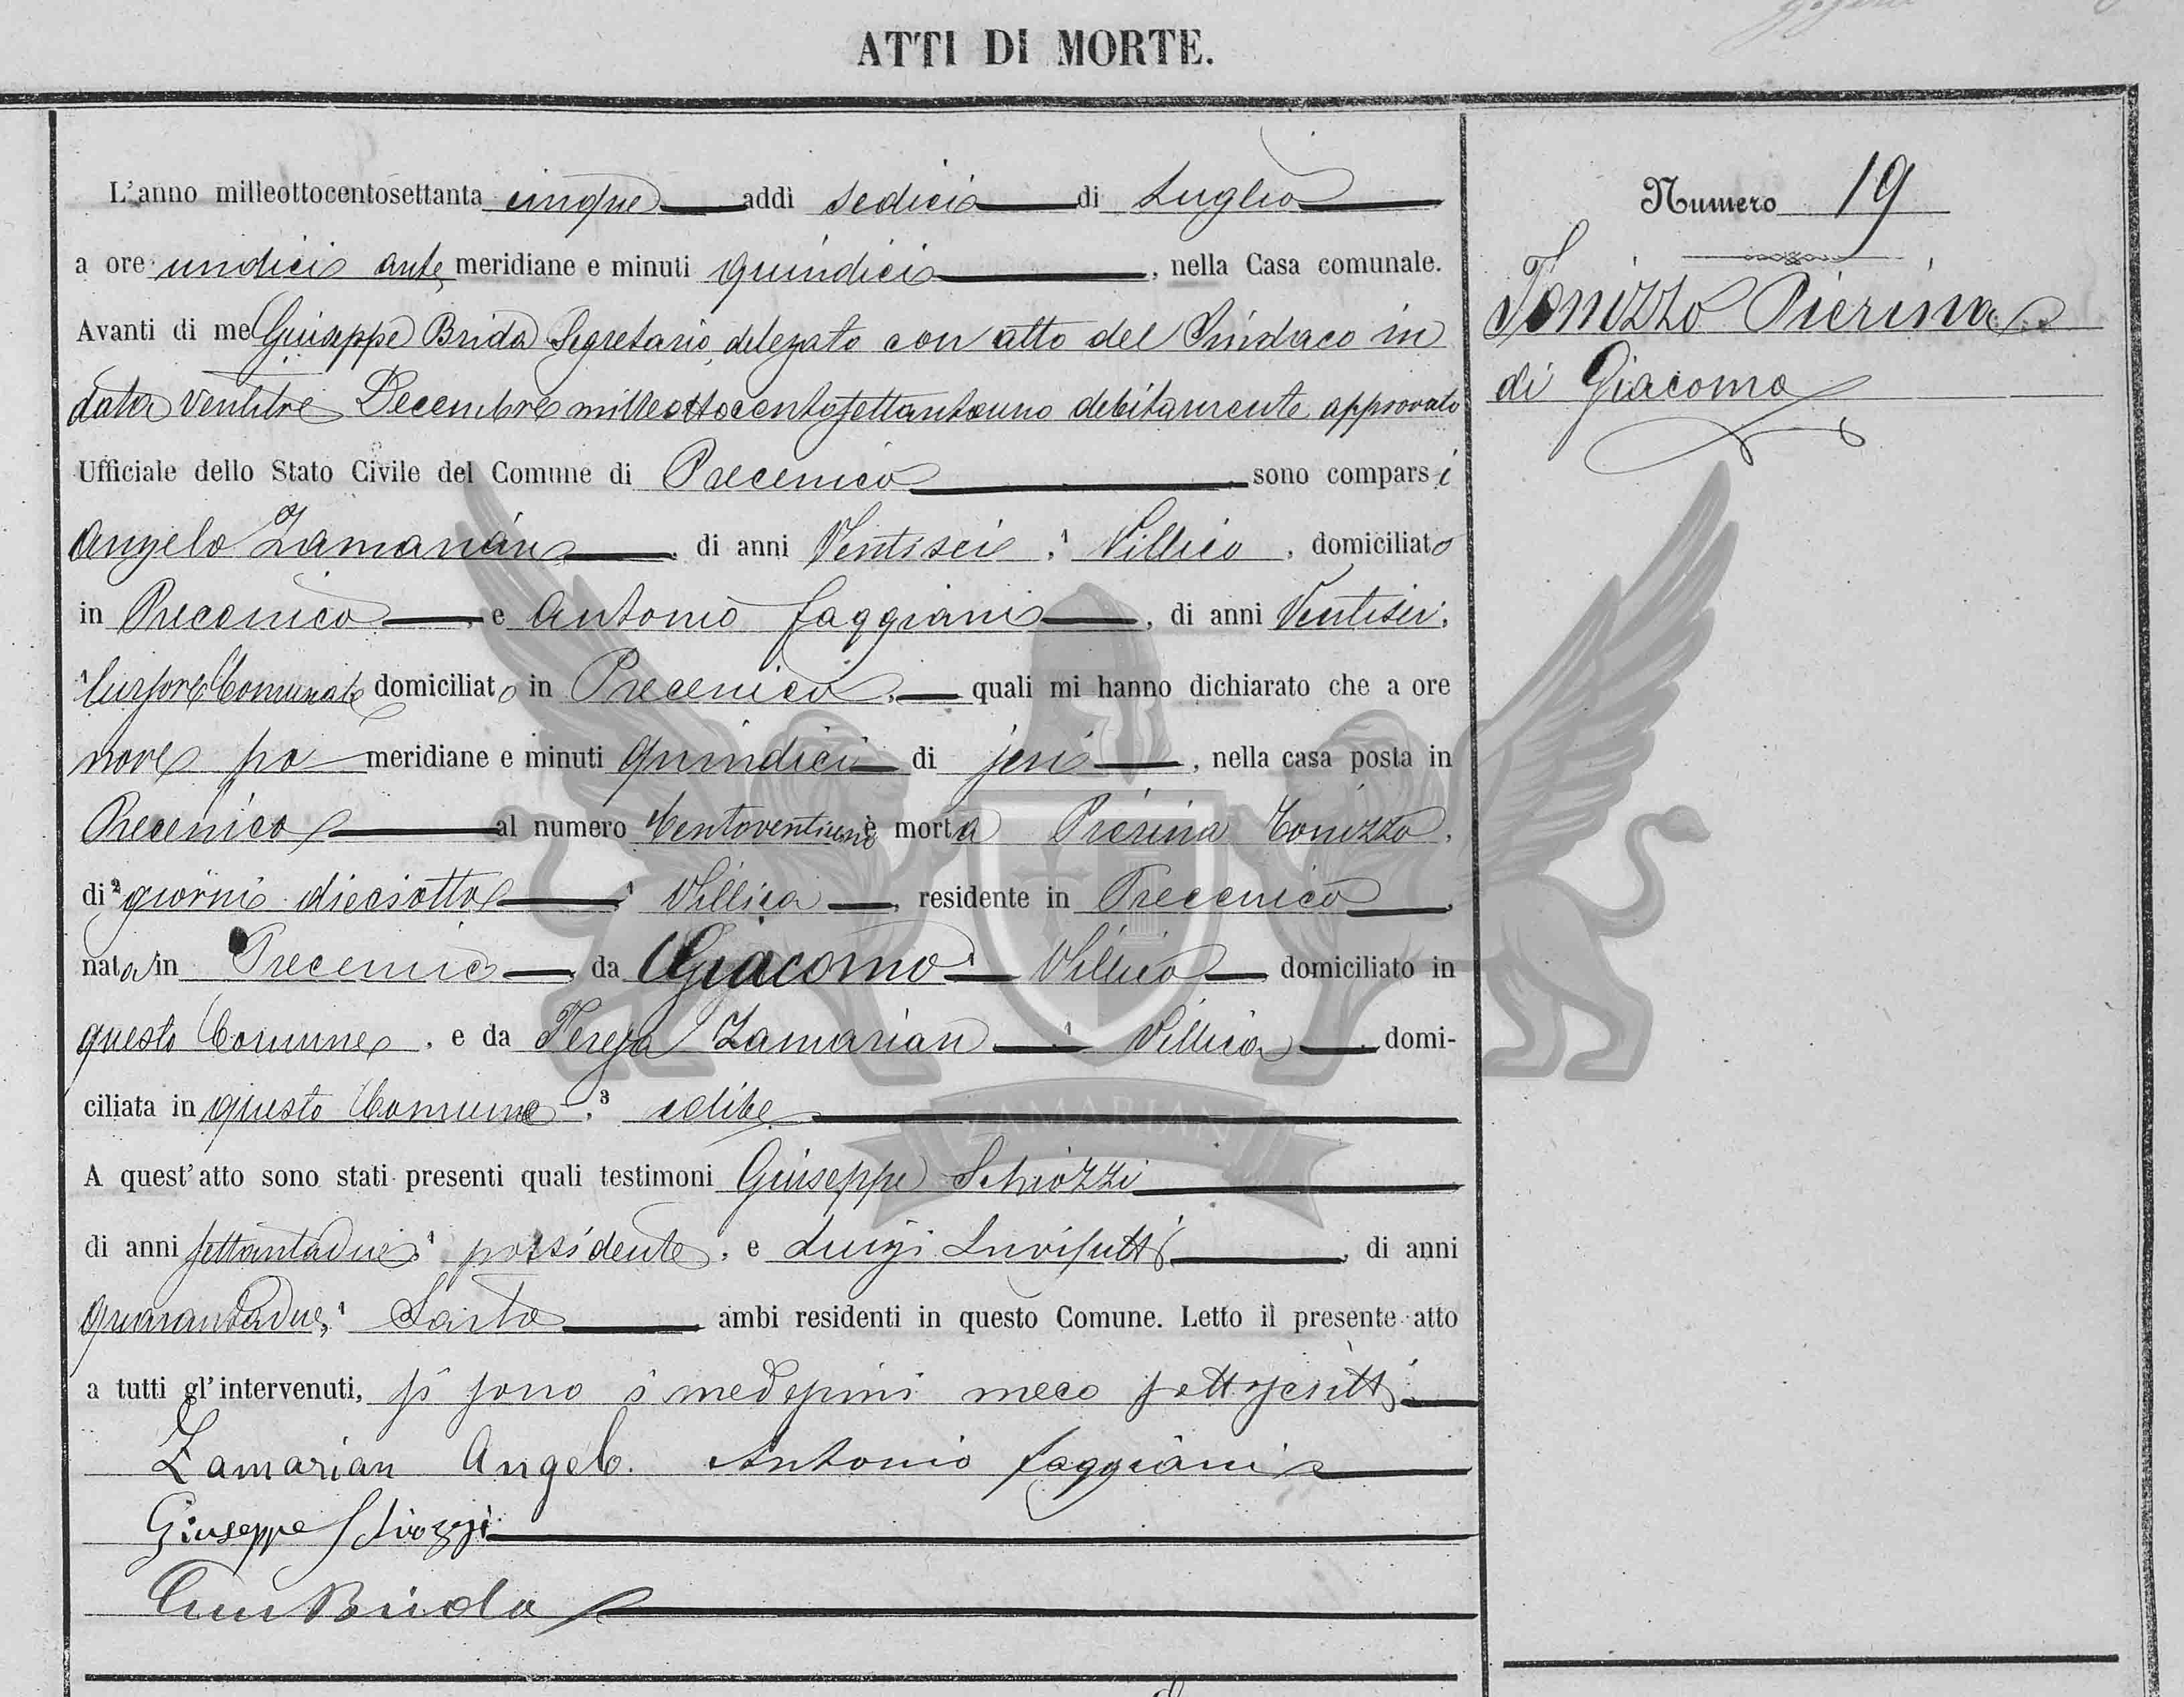 ATTI DI MORTE.
L'anno milleottocentosettanta cinque addì sedici di Luglio
a ore undici ante meridiane e minuti quindici, nella Casa comunale.
Avanti di me Giuseppe Brida Segretario delegato con atto del Sindaco in
data ventitre Decembre milleottocentosettantauno debitamente approvato
Ufficiale dello Stato Civile del Comune di Precenico sono comparsi
Angelo Zamarian, di anni Ventisei, ¹ Villico, domiciliato
in Precenico, e Antonio Faggiani, di anni Ventisei,
¹ Cursore Comunale domiciliato in Precenico, quali mi hanno dichiarato che a ore
nove po meridiane e minuti quindici di jeri, nella casa posta in
Precenico al numero Centoventiuno è morta Pierina Tonizzo,
di ² giorni dieciotto, ¹ Villica, residente in Precenico,
nata in Precenico, da Giacomo ¹ Villico domiciliato in
questo Comune, e da Teresa Zamarian ¹ Villica domi-
ciliata in questo Comune, ³ celibe
A quest'atto sono stati presenti quali testimoni Giuseppe Schiozzi
di anni settantadue, ¹ possidente, e Luigi, di anni
quarantadue, ¹ Sarto ambi residenti in questo Comune. Letto il presente atto
a tutti gl'intervenuti, si sono i medesimi meco sottoscritti.
Zamarian Angelo. Antonio Faggiani
Giuseppe Schiozzi
Brida
Numero 19
Tonizzo Pierina
di Giacomo
ZAMARIAN